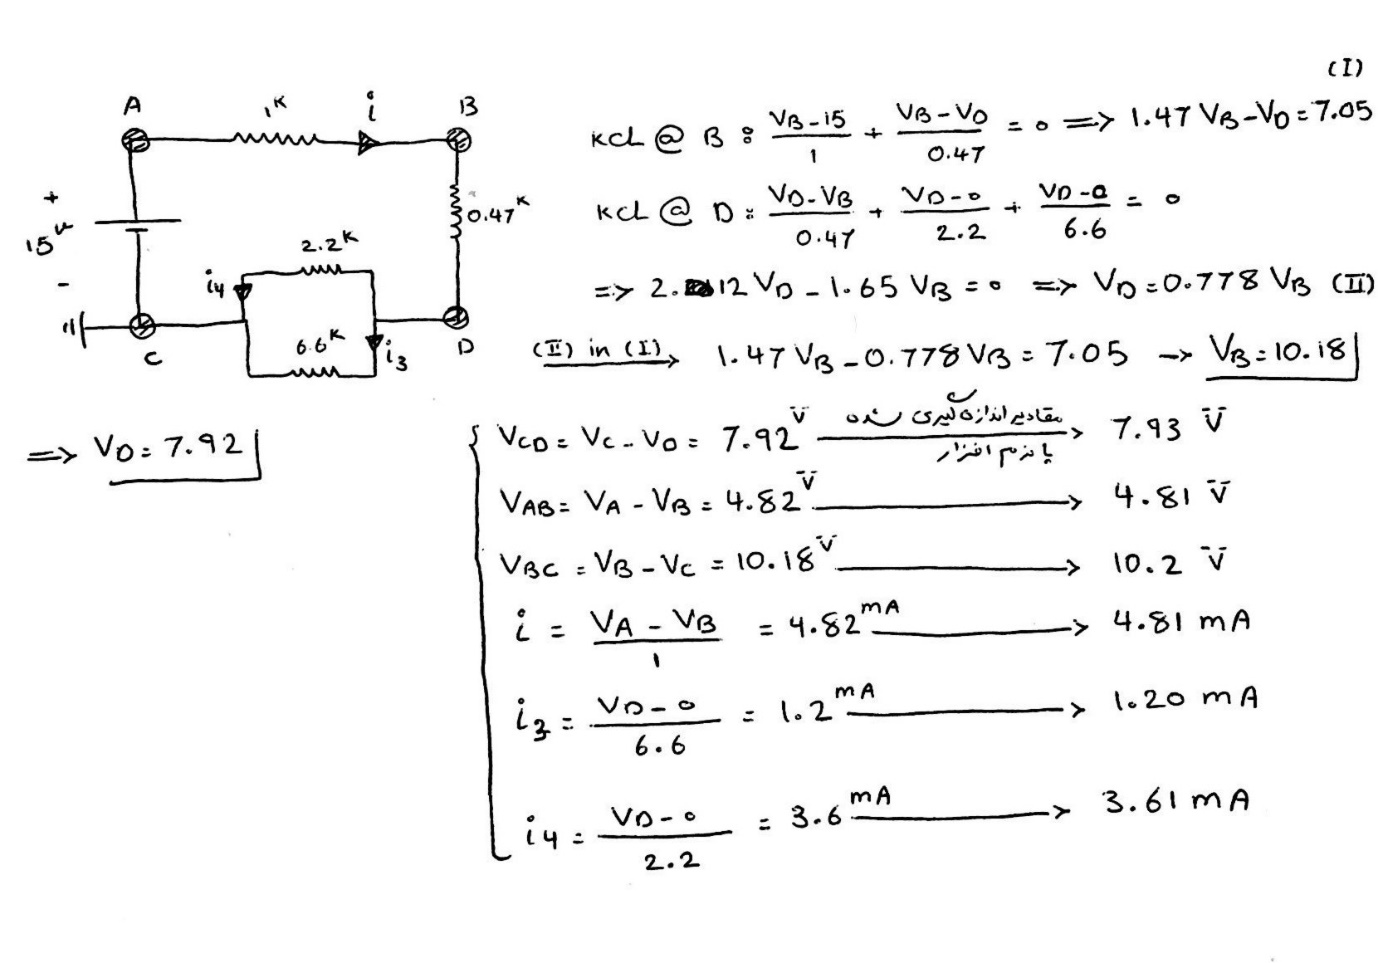 A 1K i B
+
15v
-
0.47K
2.2K
i4
6.6K
i3
C
D
(I)
KCL @ B : (VB-15)/1 + (VB-VD)/0.47 = 0 => 1.47 VB-VD=7.05
KCL @ D : (VD-VB)/0.47 + (VD-0)/2.2 + (VD-0)/6.6 = 0
=> 2.12 VD - 1.65 VB = 0 => VD=0.778 VB (II)
(II) in (I) → 1.47 VB - 0.778 VB = 7.05 → VB=10.18
=> VD=7.92
VCD = VC - VD = 7.92 V مقادیر اندازه گیری شده با نرم افزار → 7.93 V
VAB = VA - VB = 4.82 V → 4.81 V
VBC = VB - VC = 10.18 V → 10.2 V
i = (VA - VB)/1 = 4.82 mA → 4.81 mA
i3 = (VD-0)/6.6 = 1.2 mA → 1.20 mA
i4 = (VD-0)/2.2 = 3.6 mA → 3.61 mA